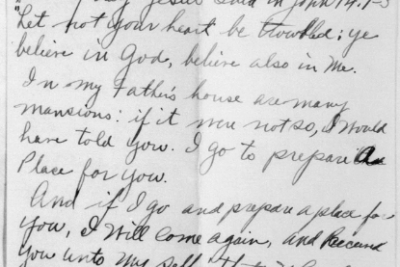 Jesus said in John 14:1-3
"Let not your heart be troubled; ye
believe in God, believe also in Me.
In my Father's house are many
mansions: if it were not so, I would
have told you. I go to prepare a
Place for you.
And if I go and prepare a place for
you, I will come again, and
you unto My self, that